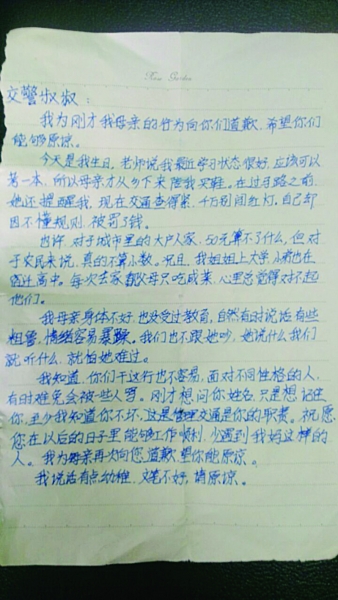 Garden
交警叔叔：
我为刚才我母亲的行为向你们道歉，希望你们
能够原谅。
今天是我生日，老师说我最近学习状态很好，应该可以
第一本，所以母亲才从乡下来陪我买鞋。在过马路之前，
她还提醒我，现在交通查得紧，千万别闯红灯，自己却
因不懂规则，被罚了钱。
也许，对于城市里的大户人家，50元算不了什么，但对
于农民来说，真的不算小数。况且，我姐姐上大学，小弟也在
镇江上高中。每次去家都父母只吃咸菜，心里总觉得对不起
他们。
我母亲身体不好，也没受过教育，自然有时说话有些
粗鲁，情绪容易暴躁。我们也不跟她吵，她说什么我们
就听什么，就怕她难过。
我知道，你们干这行也不容易，面对不同性格的人，
有时难免会被一些人骂。刚才想问你姓名，只是想记住
你，至少我知道你不坏，这是管理交通是你的职责。祝愿
您在以后的日子里能够工作顺利，少遇到我妈这样的
人。我为母亲再次向您道歉，望你能原谅。
我说话有点幼稚，文笔不好，请原谅。